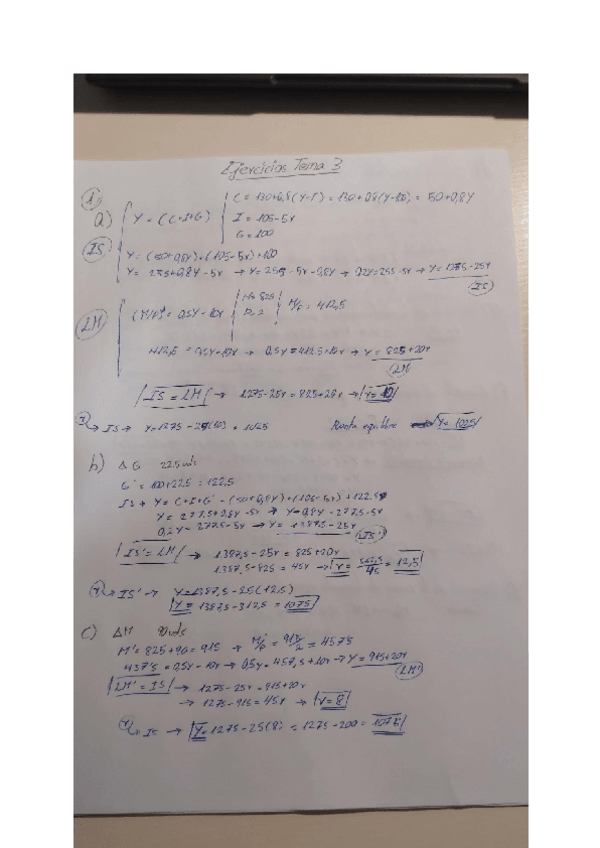 Ejercicios Tema 3
1)
a) Y = (C+I+G) C = 130+0,8(Y-T) = 130+0,8(Y-100) = 50+0,8Y
I = 105-5r
G = 100
IS Y = (50+0,8Y)+(105-5r)+100
Y = 255+0,8Y-5r → Y = 255-5r-0,8Y → 0,2Y=255-5r → Y=1275-25r
(IS)
LM (M/P) = 0,5Y-10r M=825 P=2 M/P = 412,5
412,5 = 0,5Y-10r → 0,5Y=412,5+10r → Y = 825+20r
(LM)
IS = LM → 1275-25r = 825+20r → r=10
Y → IS → Y=1275-25(10) = 1025 Renta equilibrio Y=1025
b) ΔG 22,5 uds
G' = 100+22,5 = 122,5
IS → Y = C+I+G' = (50+0,8Y)+(105-5r)+122,5
Y = 277,5+0,8Y-5r → Y-0,8Y=277,5-5r
0,2Y=277,5-5r → Y= 1387,5-25r
(IS')
IS' = LM → 1387,5-25r = 825+20r
1387,5-825 = 45r → r = 562,5/45 = 12,5
Y → IS' → Y=1387,5-25(12,5)
Y = 1387,5-312,5 = 1075
c) ΔM 90 uds
M' = 825+90 = 915 → M'/P = 915/2 = 457,5
457,5 = 0,5Y-10r → 0,5Y=457,5+10r → Y=915+20r
(LM')
LM' = IS → 1275-25r=915+20r
→ 1275-915=45r → r=8
Y → IS → Y=1275-25(8) = 1275-200 = 1075